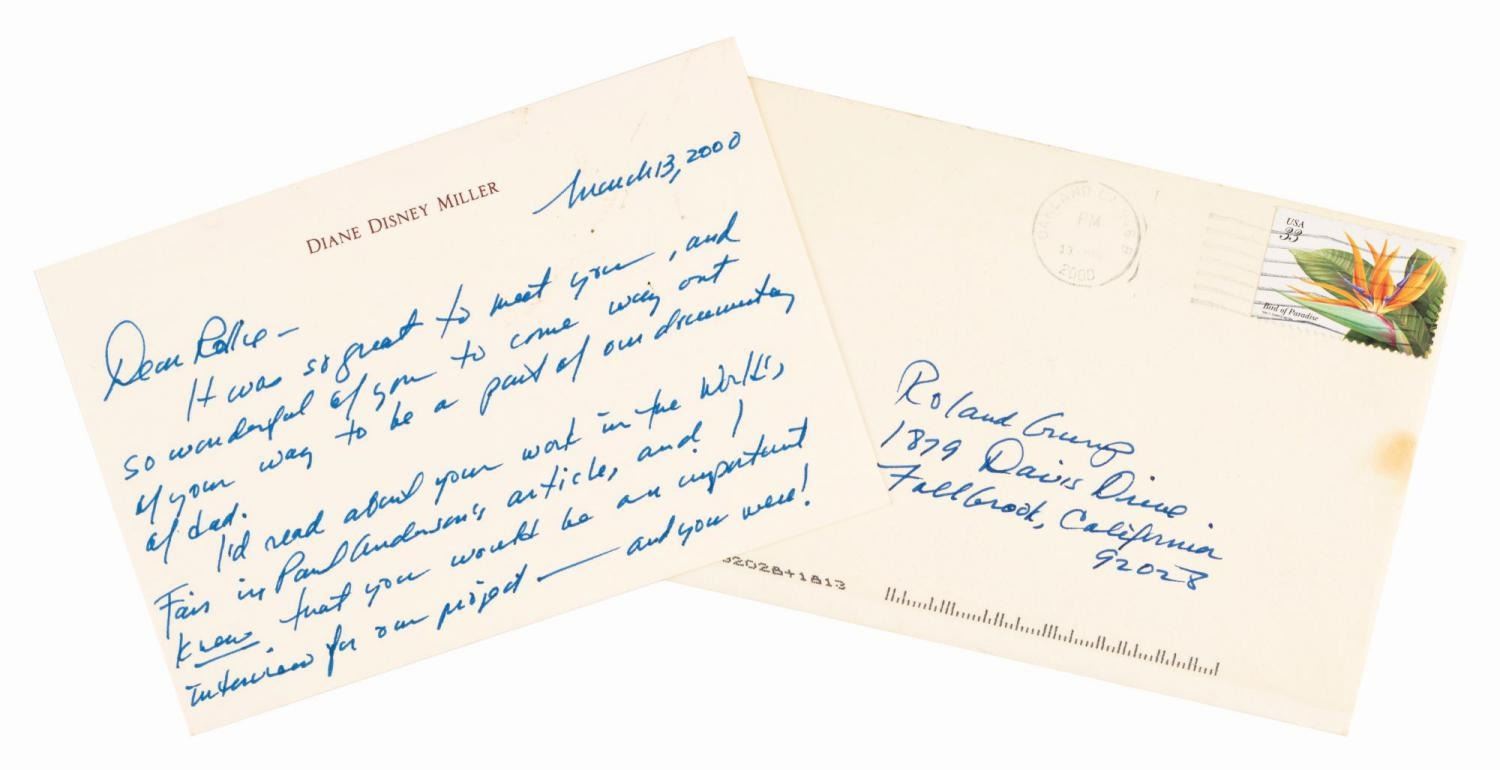 DIANE DISNEY MILLER
March 13, 2000
Dear Rollie -
It was so great to meet you, and
so wonderful of you to come way out
of your way to be a part of our documentary
of dad.
I'd read about your work in the World's
Fair in Paul Anderson's article, and I
knew that you would be an important
interview for our project — and you were!
OAKLAND CA
PM
13
2000
USA
33
Bird of Paradise
Roland Crump
1879 Davis Drive.
Fallbrook, California
92028
92028+1813